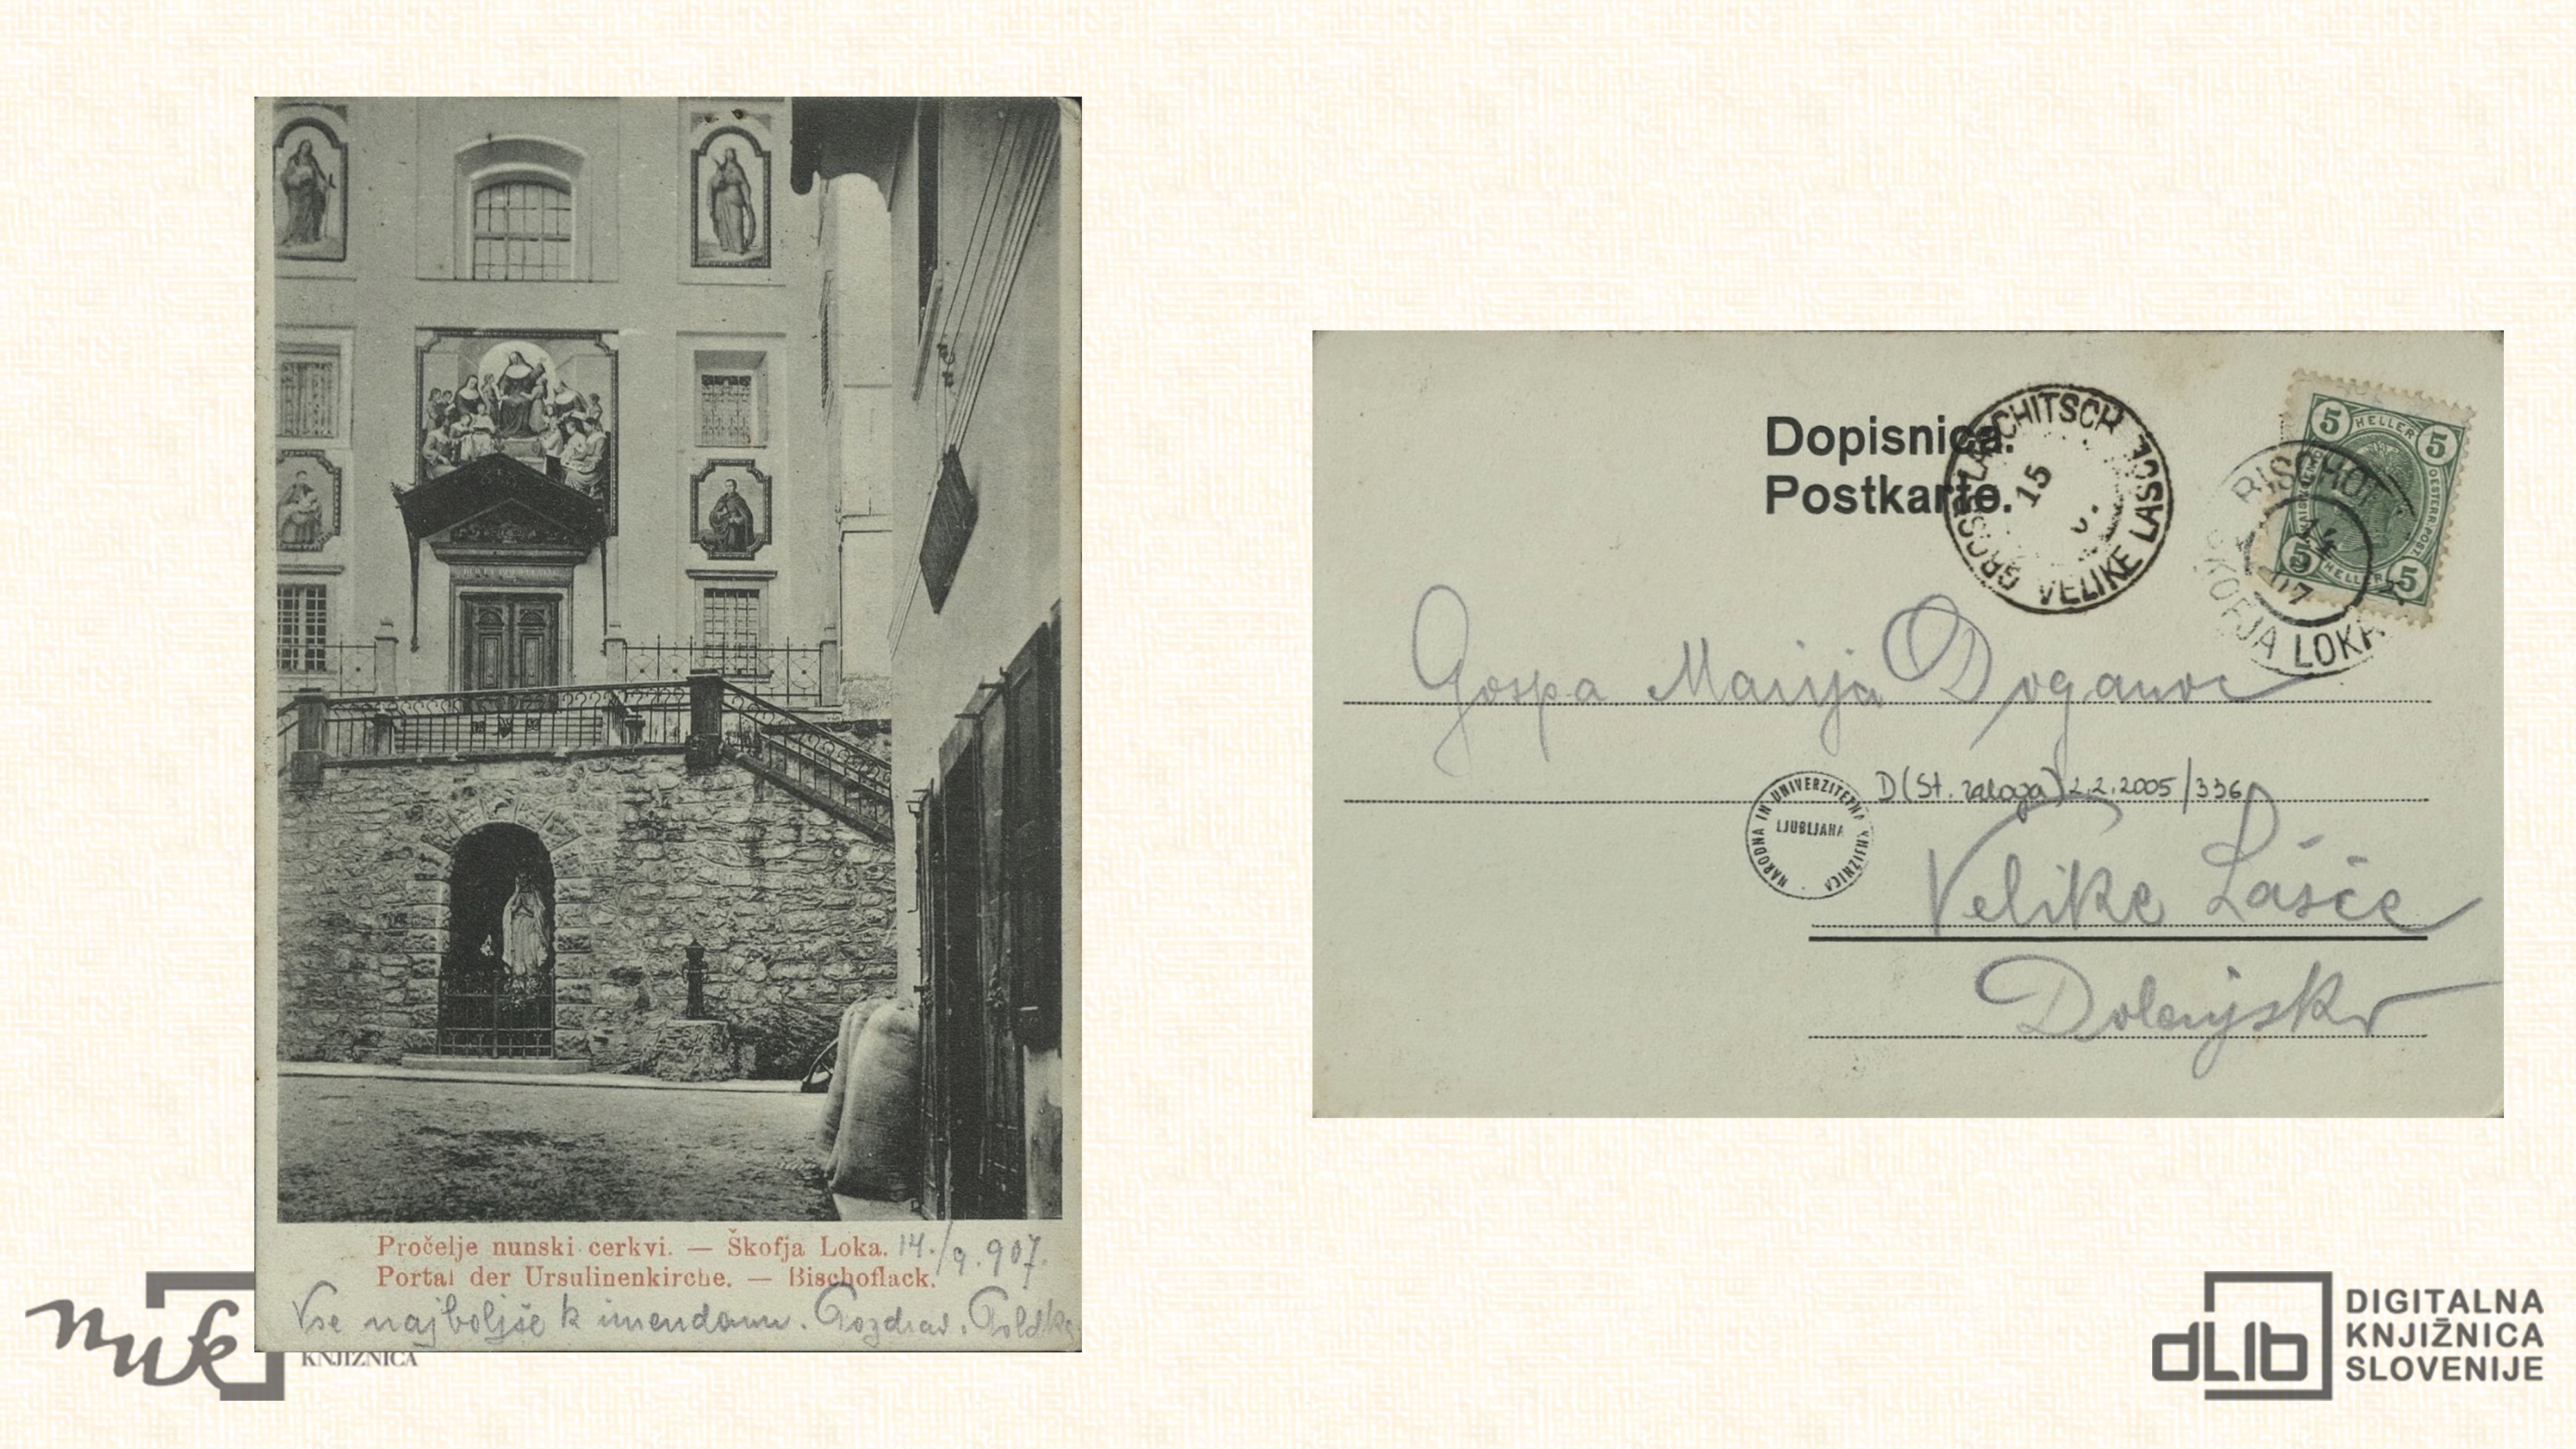 Pročelje nunski cerkvi. — Škofja Loka. 14./9. 907.
Portal der Ursulinenkirche. — Bischoflack.
Vse najboljše k imendanu. Pozdrav. Poldka
nuk
KNJIŽNICA
Dopisnica.
Postkarte.
GROSSLASCHITSCH
15
VELIKE LAŠČE
5 HELLER 5
OESTERR. POST
5 HELLER 5
BISCHOF
14
07
ŠKOFJA LOKA
Gospa Marija Doganoc
NARODNA IN UNIVERZITETNA KNJIŽNICA
LJUBLJANA
D(St. zaloga) 2.2.2005/336
Velike Lašče
Dolenjsko
dLib
DIGITALNA
KNJIŽNICA
SLOVENIJE